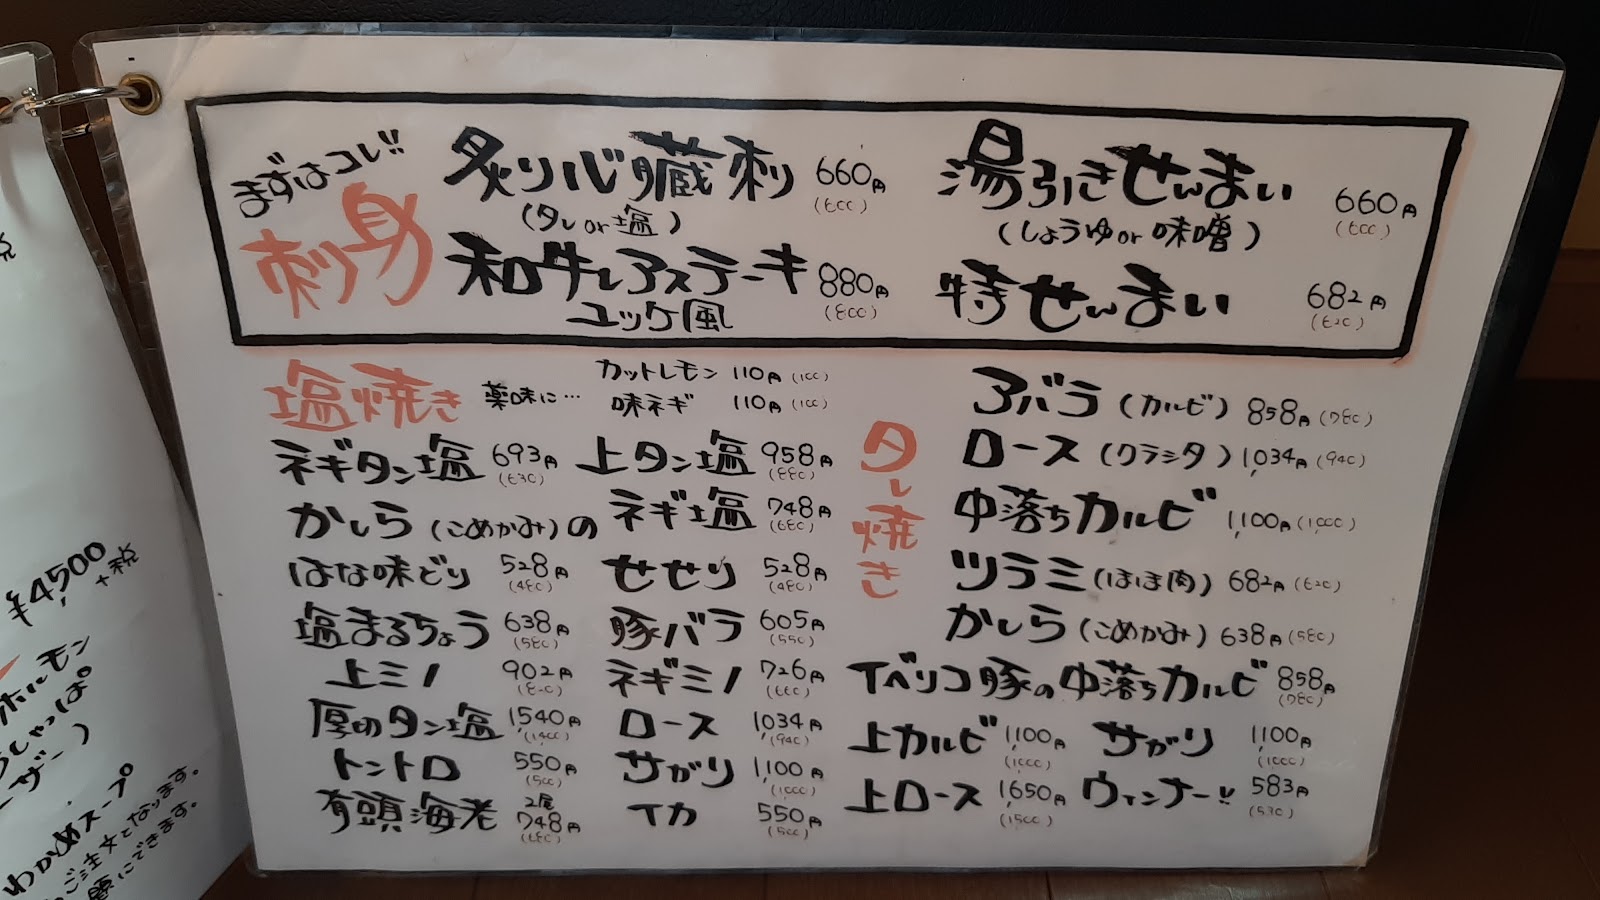 まずはコレ!!
刺身
炙り心臓刺 660円 (600)
(タレor塩)
和牛レアステーキ 880円 (800)
ユッケ風
湯引きせんまい 660円 (600)
(しょうゆor味噌)
特せんまい 682円 (620)
塩焼き 薬味に…
カットレモン 110円 (100)
味ネギ 110円 (100)
ネギタン塩 693円 (630)
上タン塩 958円
かしら(こめかみ)の
ネギ塩 748円 (680)
はな味どり 528円 (480)
せせり 528円 (480)
塩まるちょう 638円 (580)
豚バラ 605円 (550)
上ミノ 902円 (820)
ネギミノ 726円 (660)
厚切タン塩 1,540円 (1,400)
ロース 1,034円 (940)
トントロ 550円 (500)
サガリ 1,100円 (1,000)
有頭海老 2尾 748円 (680)
イカ 550円 (500)
タレ焼き
アバラ (カルビ) 858円 (780)
ロース (クラシタ) 1,034円 (940)
中落ちカルビ 1,100円 (1,000)
ツラミ (ほほ肉) 682円 (620)
かしら (こめかみ) 638円 (580)
イベリコ豚の中落ちカルビ 858円 (780)
上カルビ 1,100円 (1,000)
サガリ 1,100円 (1,000)
上ロース 1,650円 (1500)
ウィンナー!! 583円 (530)
税
¥4,500
+税
ホルモン
わかめスープ
ご注文となります。
にできます。